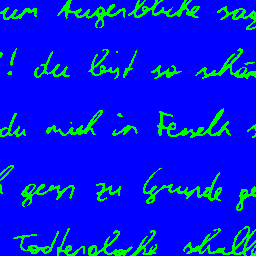 um Augenblicke sag
! du bist so schön
du mich in Fesseln s
gern zu Grunde ge
Todtenglocke schalle